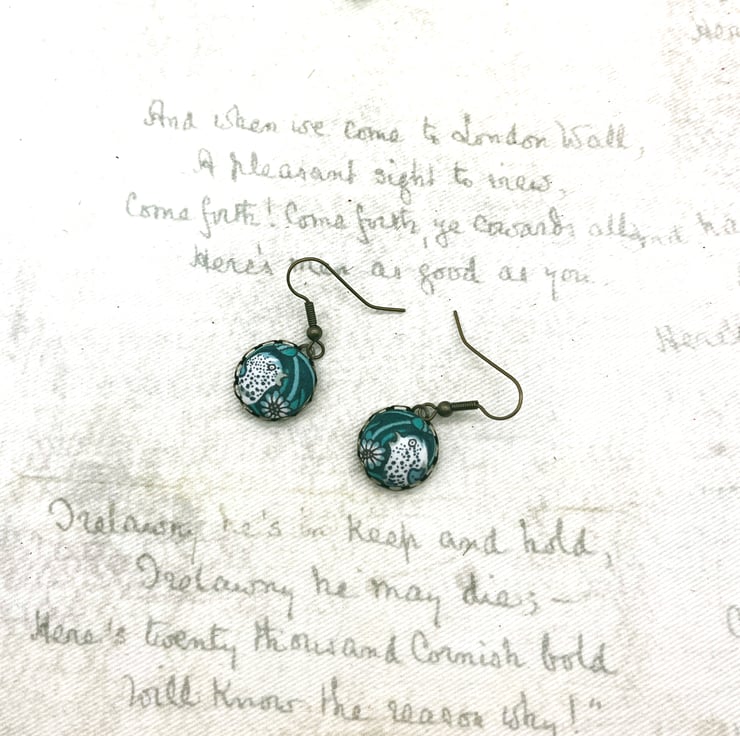 Here
And when we come to London Wall,
A pleasant sight to view,
Come forth! Come forth, ye cowards all,
nd ha
Here's men as good as you.
Here's
Trelawny he's in keep and hold,
Trelawny he may die; —
Here's twenty thousand Cornish bold
Will know the reason why!"